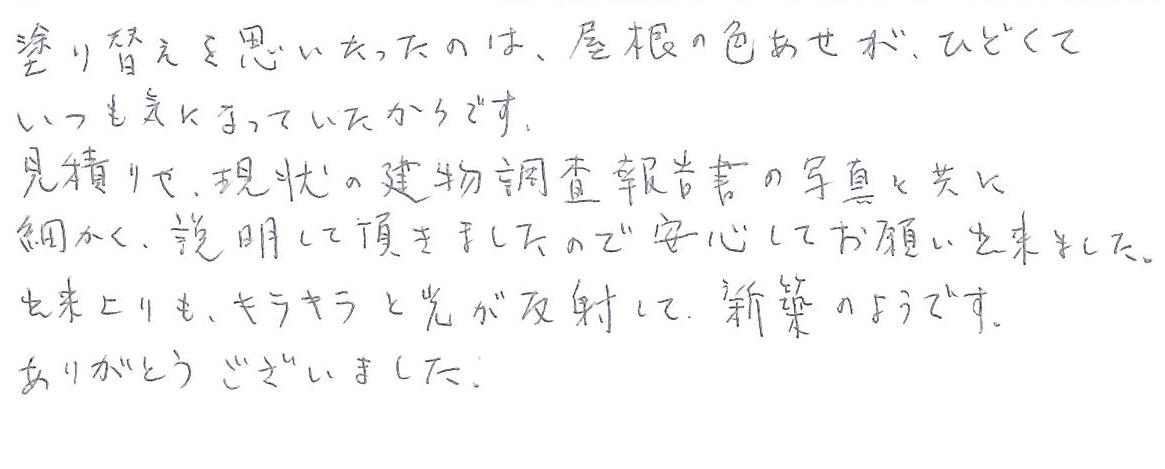 塗り替えを思いたったのは、屋根の色あせが、ひどくて
いつも気になっていたからです。
見積りや、現状の建物調査報告書の写真と共に
細かく、説明して頂きましたので安心してお願い出来ました。
出来上りも、キラキラと光が反射して、新築のようです。
ありがとうございました。